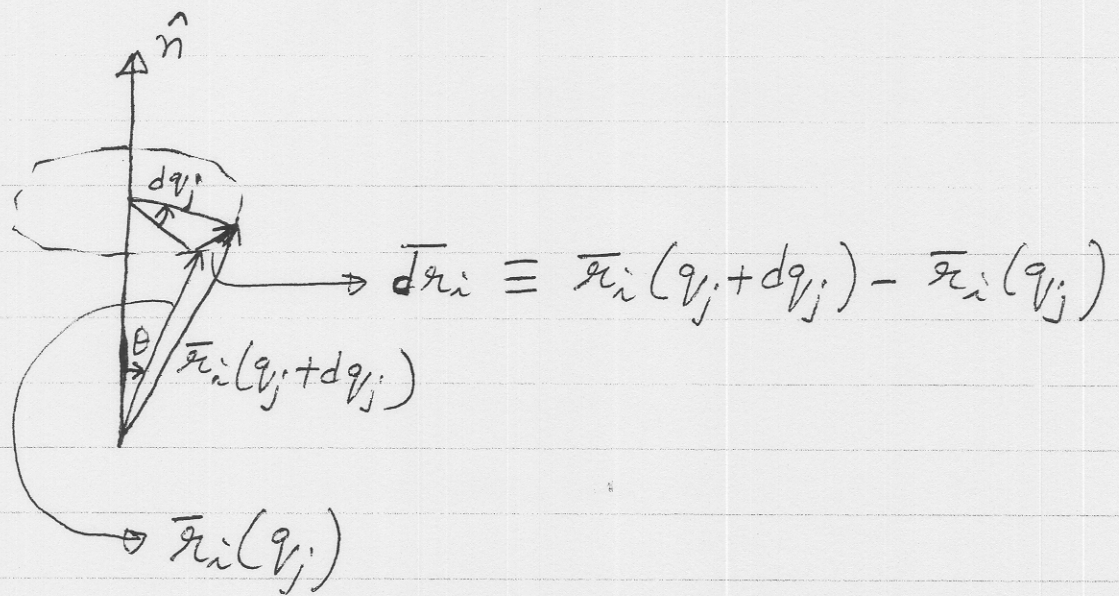 n̂
dqⱼ
d̅r̅ᵢ ≡ r̅ᵢ(qⱼ+dqⱼ) - r̅ᵢ(qⱼ)
θ
r̅ᵢ(qⱼ+dqⱼ)
r̅ᵢ(qⱼ)